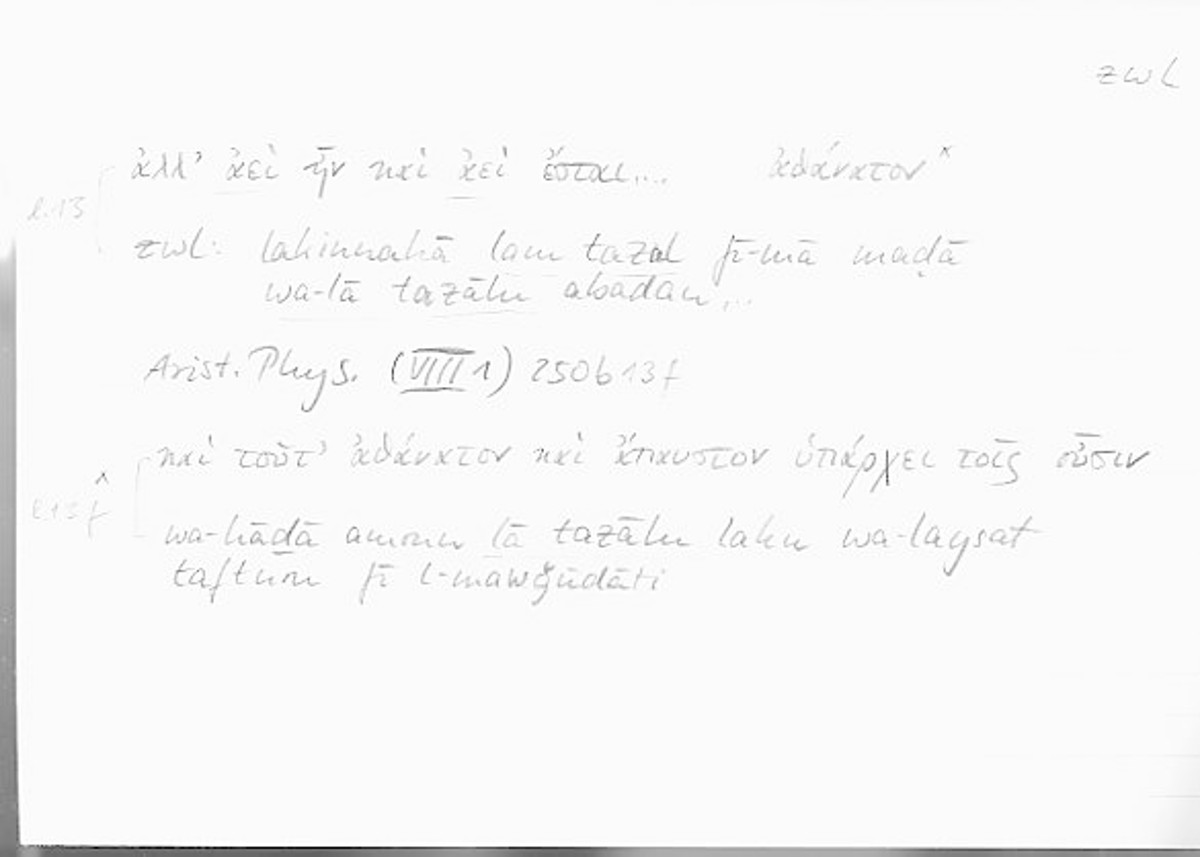 zwl
ἀλλ' ἀεὶ ἦν καὶ ἀεὶ ἔσται.... ἀθάνατον ˣ
l. 13
zwl: lakinnahā lam tazal fī-mā maḍā
wa-lā tazālu abadan...
Arist. Phys. (VIII 1) 250b13f
καὶ τοῦτ' ἀθάνατον καὶ ἄπαυστον ὑπάρχει τοῖς οὖσιν
l 13 f
wa-hāḏā lā tazālu wa-laysat
fī l-mawǧūdāti